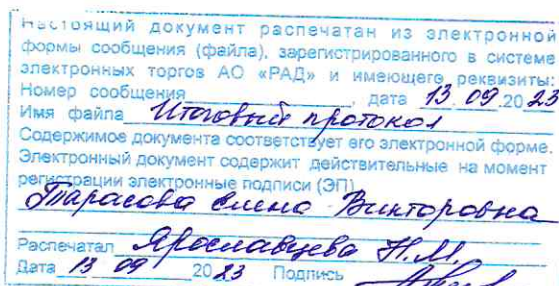 Настоящий документ распечатан из электронной
формы сообщения (файла), зарегистрированного в системе
электронных торгов АО «РАД» и имеющего реквизиты:
Номер сообщения____________, дата 13.09.2023
Имя файла Итоговый протокол
Содержимое документа соответствует его электронной форме.
Электронный документ содержит действительные на момент
регистрации электронные подписи (ЭП)
Тарасова Елена Викторовна
Распечатал Ярославцева Н.М.
Дата 13 09 2023 Подпись